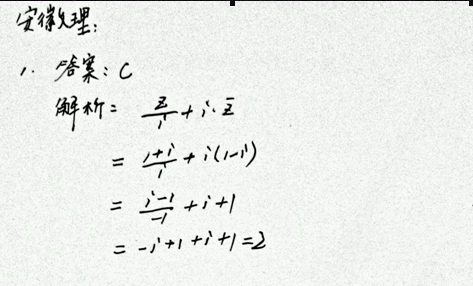 安徽文理:
1. 答案: C
解析: z/i + i·z̄
= (1+i)/i + i(1-i)
= (i-1)/(-1) + i + 1
= -i + 1 + i + 1 = 2